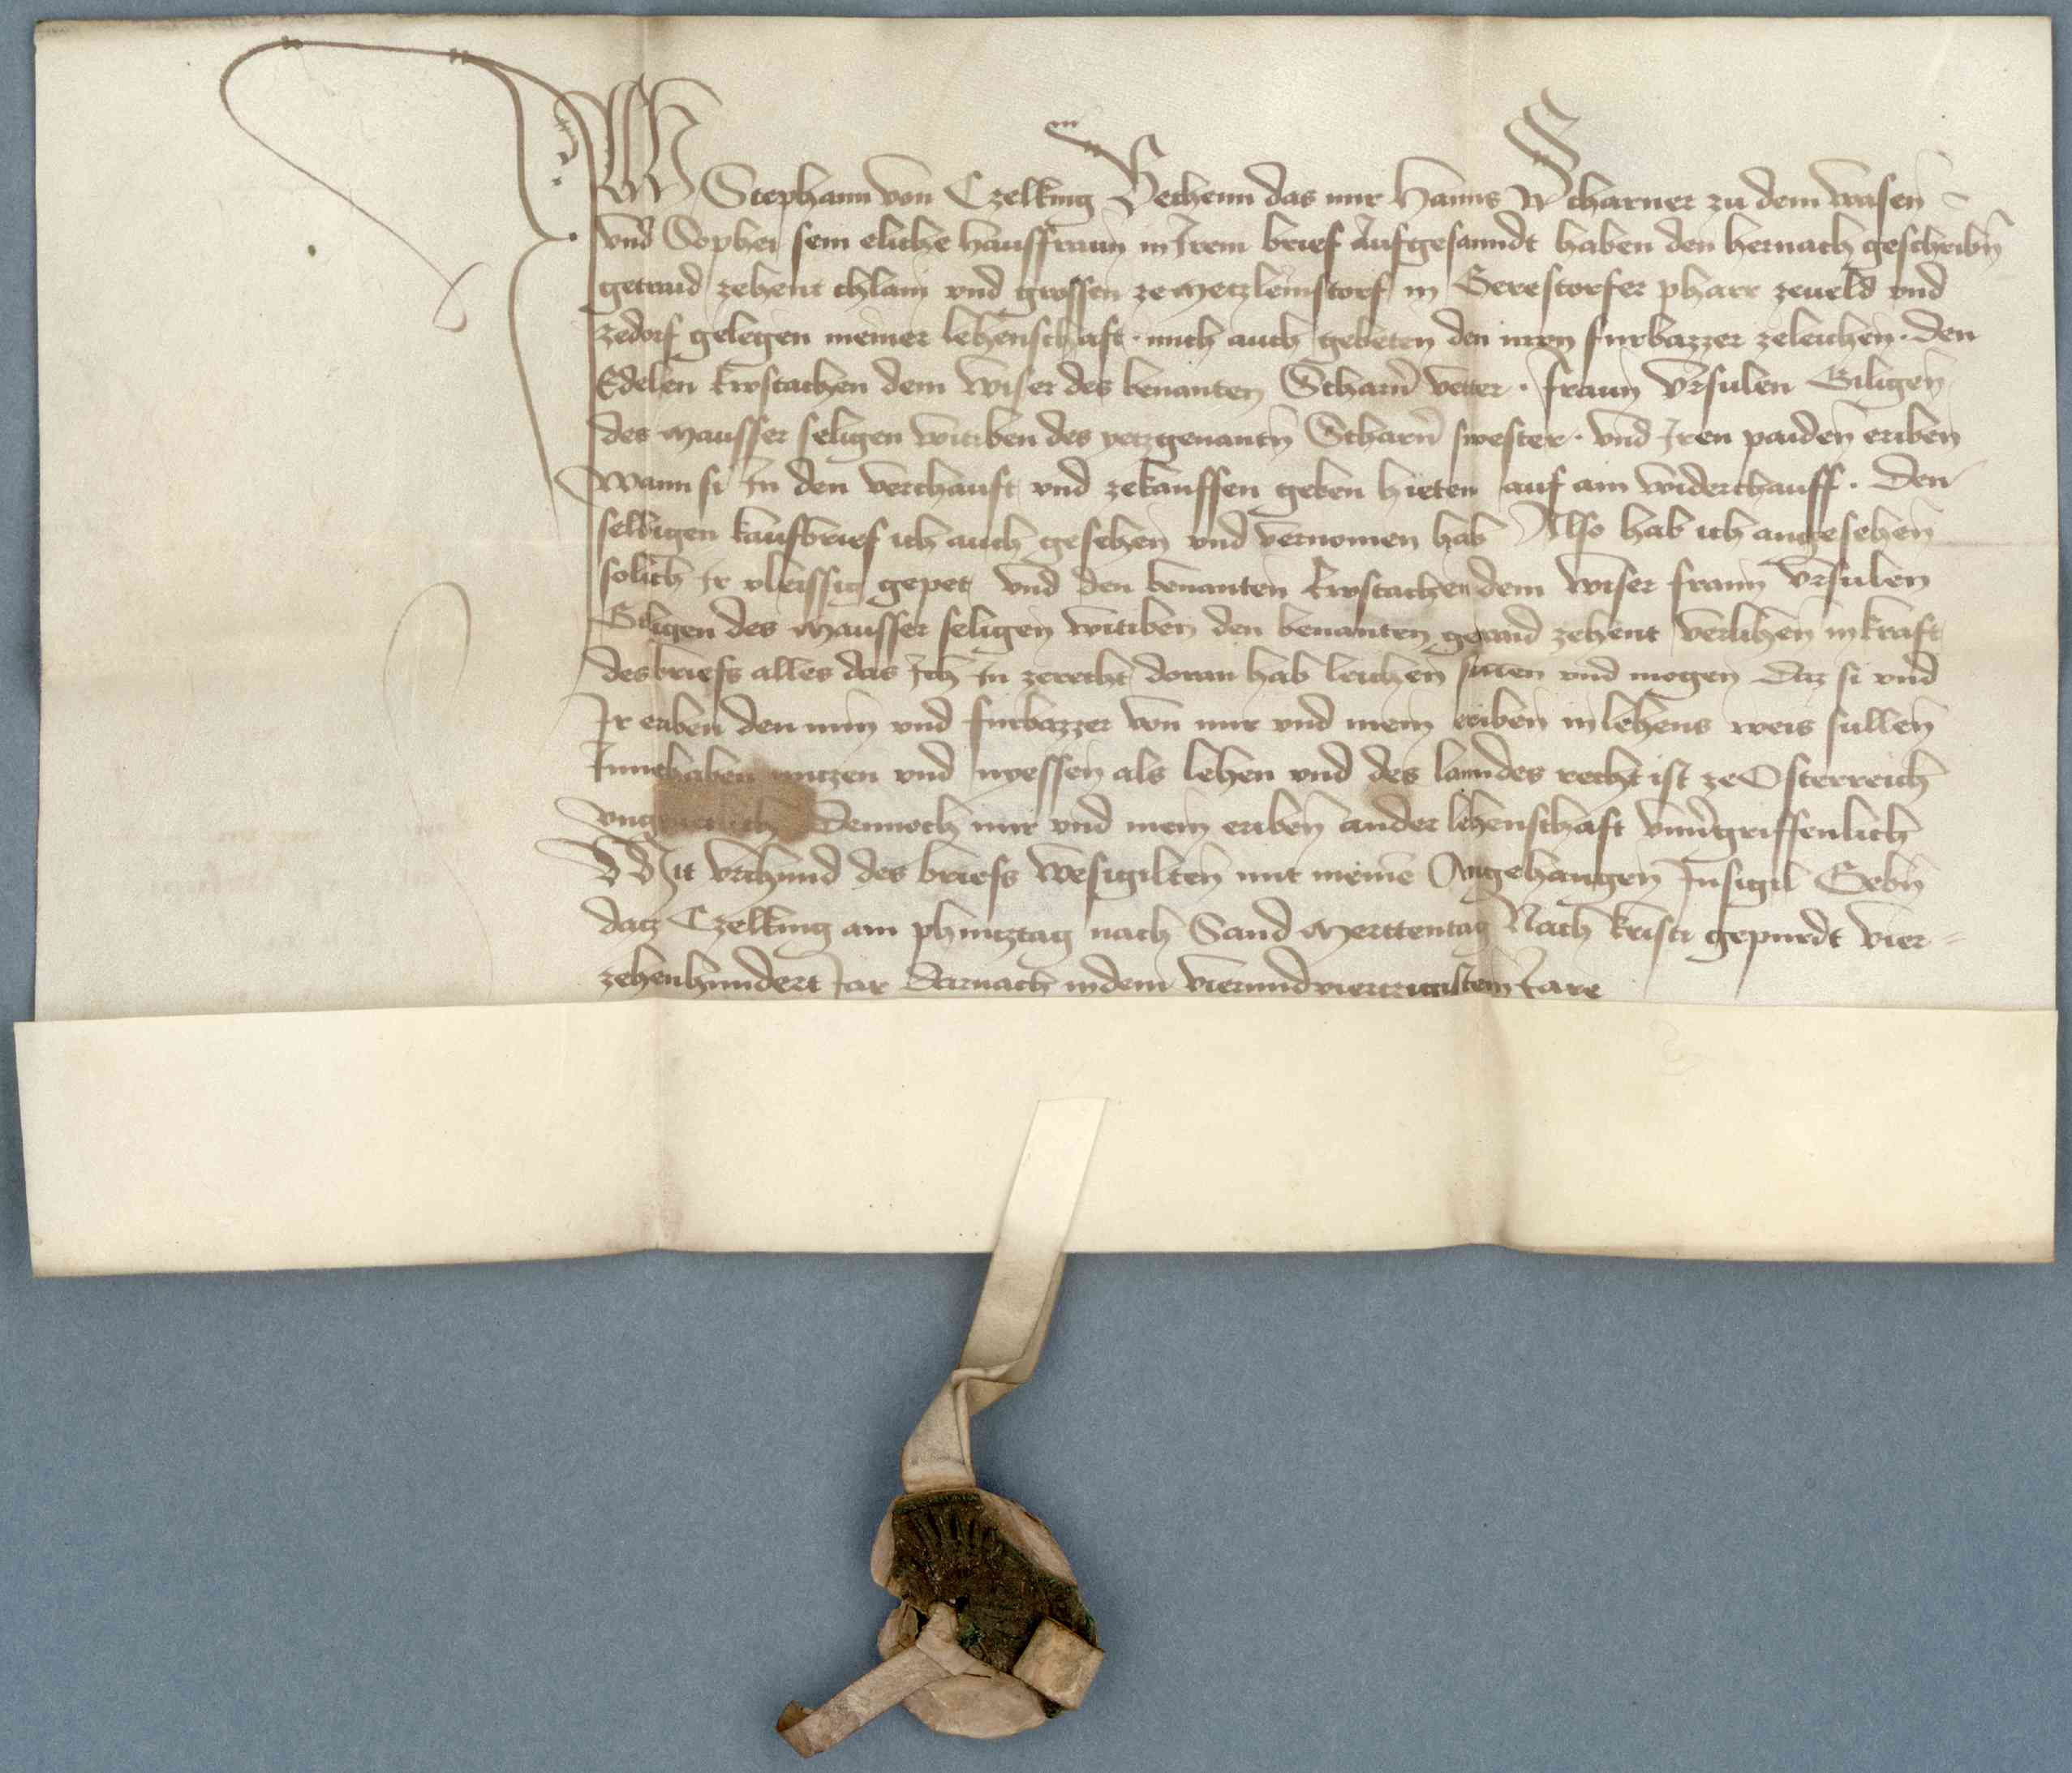 Ich Stephann von Czelking Bechenn das mir Hanns Scharner zu dem Wasen
vnd Sophei sein eliche hausfraun in Irem brief Aufgesanndt haben den hernach geschribn̄
getraid zehent chlain vnd grossen ze Metzleinstorf in Gerestorfer pharr zeueld vnd
zedorf gelegen meiner lehenschaft · mich auch gebeten den nun furbazzer zeleichen · den
Edelen Ewstachen dem Wiser des benanten Scharn̄ vetter · fraun Vrsulen Giligen
des Mausser seligen witiben des yetzgenantn̄ Scharn̄ swester · vnd Iren paiden eriben
Wann si In den verchauft vnd zekauffen geben hieten auf ain widerchauff · Den
selbigen kaufbrief ich auch gesehen vnd vernomen hab Also hab ich angesehen
solich Ir vleissig gepet vnd den benanten Ewstachen dem Wiser fraun Vrsulen
Giligen des Mausser seligen witiben den benanten getraid zehent verlihen in kraft
des briefs alles das Ich In zerecht doran hab leichen suten vnd mogen Daz si vnd
Ir eriben den nun vnd furbazzer von mir vnd mein eriben in lehens weis sullen
Innehaben nutzen vnd nyessen als lehen vnd des lanndes recht ist ze Osterreich
vngeuerlich Dennoch mir vnd mein eriben ander lehenschaft vnuergriffenlich
Mit vrchund des briefs Wesigilten mit meinē Angehangen Insigil Gebn̄
datz Czelking am phintztag nach Sand Merttentag Nach kristi gepurdt vier=
zehenhundert Jar Darnach in dem vierundviertzigistem Jare